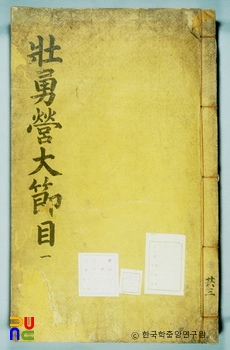 壯勇營大節目
一
共三
© 한국학중앙연구원